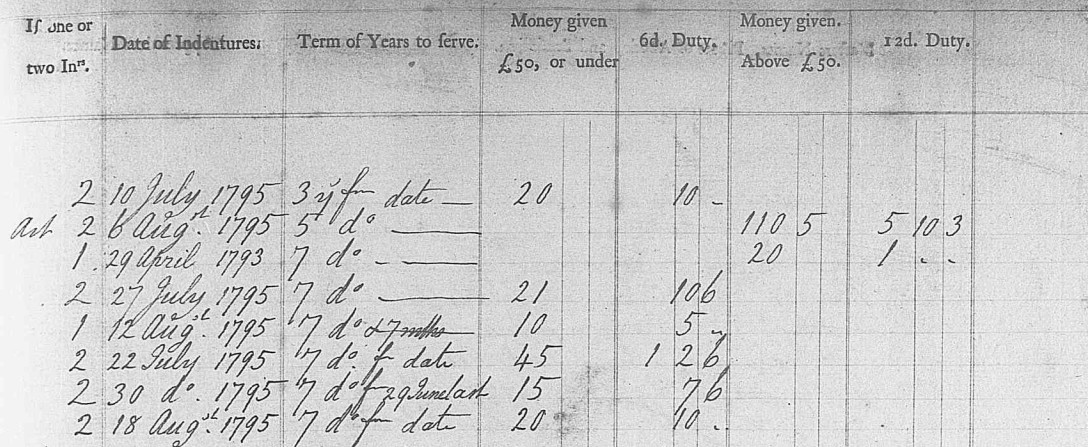 If one or two Inrs. Date of Indentures. Term of Years to serve. Money given £50, or under 6d. Duty. Money given. Above £50. 12d. Duty.
2 10 July 1795 3 y fm date — 20 10 -
Art 2 6 Augst. 1795 5 do —— 110 5 5 10 3
1 29 April 1793 7 do - —— 20 1 . .
2 27 July 1795 7 do —— 21 10 6
1 12 Augst. 1795 7 do & 7 mths 10 5 -
2 22 July 1795 7 do. f date 45 1 2 6
2 30 do. 1795 7 do f 29 June last 15 7 6
2 18 Augst. 1795 7 do fm date 20 10 .